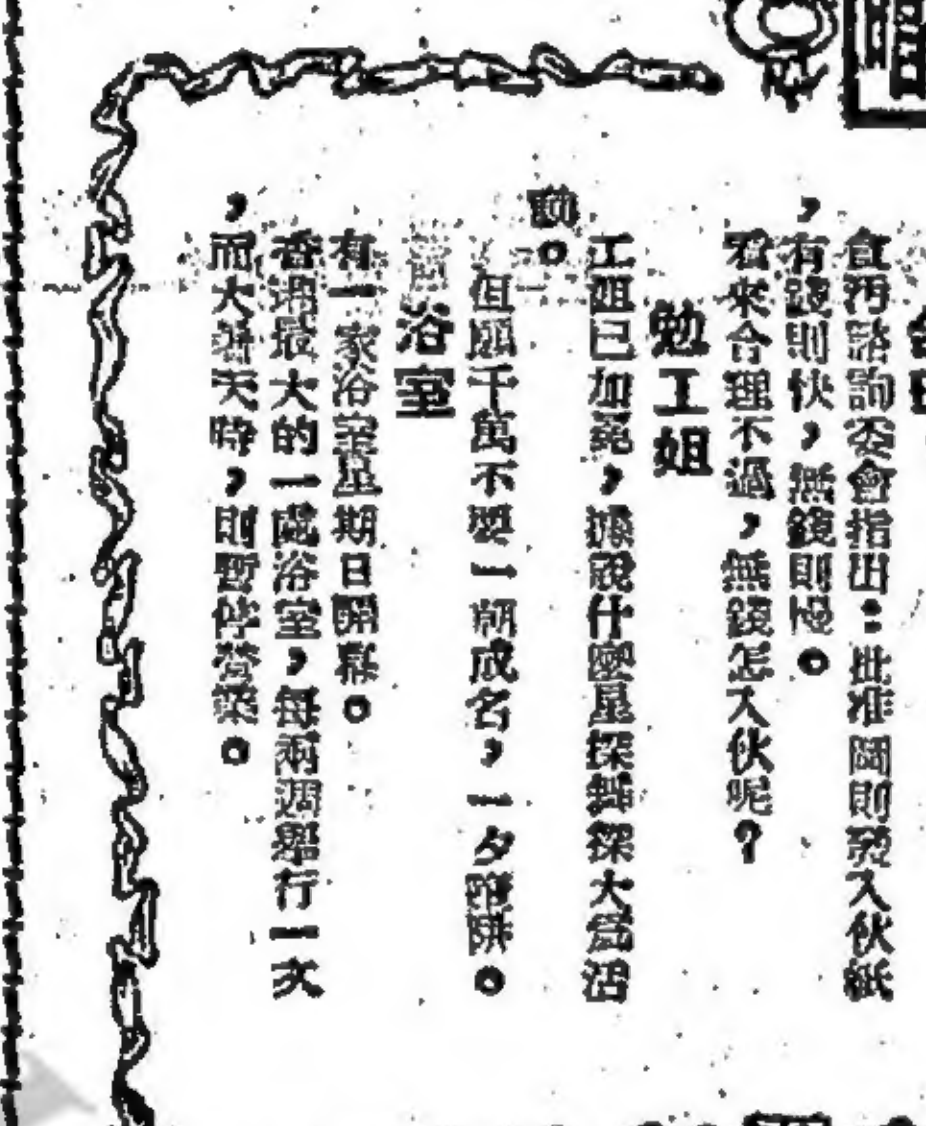 貪污諮詢委會指出：批准圖則發入伙紙
，有錢則快，無錢則慢。
看來合理不過，無錢怎入伙呢？
勉工姐
工姐已加冕，據說什麼星探舞探大為活
動。
但願千萬不要一朝成名，一夕陷阱。
浴室
有一家浴室星期日開幕。
香港最大的一處浴室，每兩週舉行一次
，而大著天時，則暫停營業。